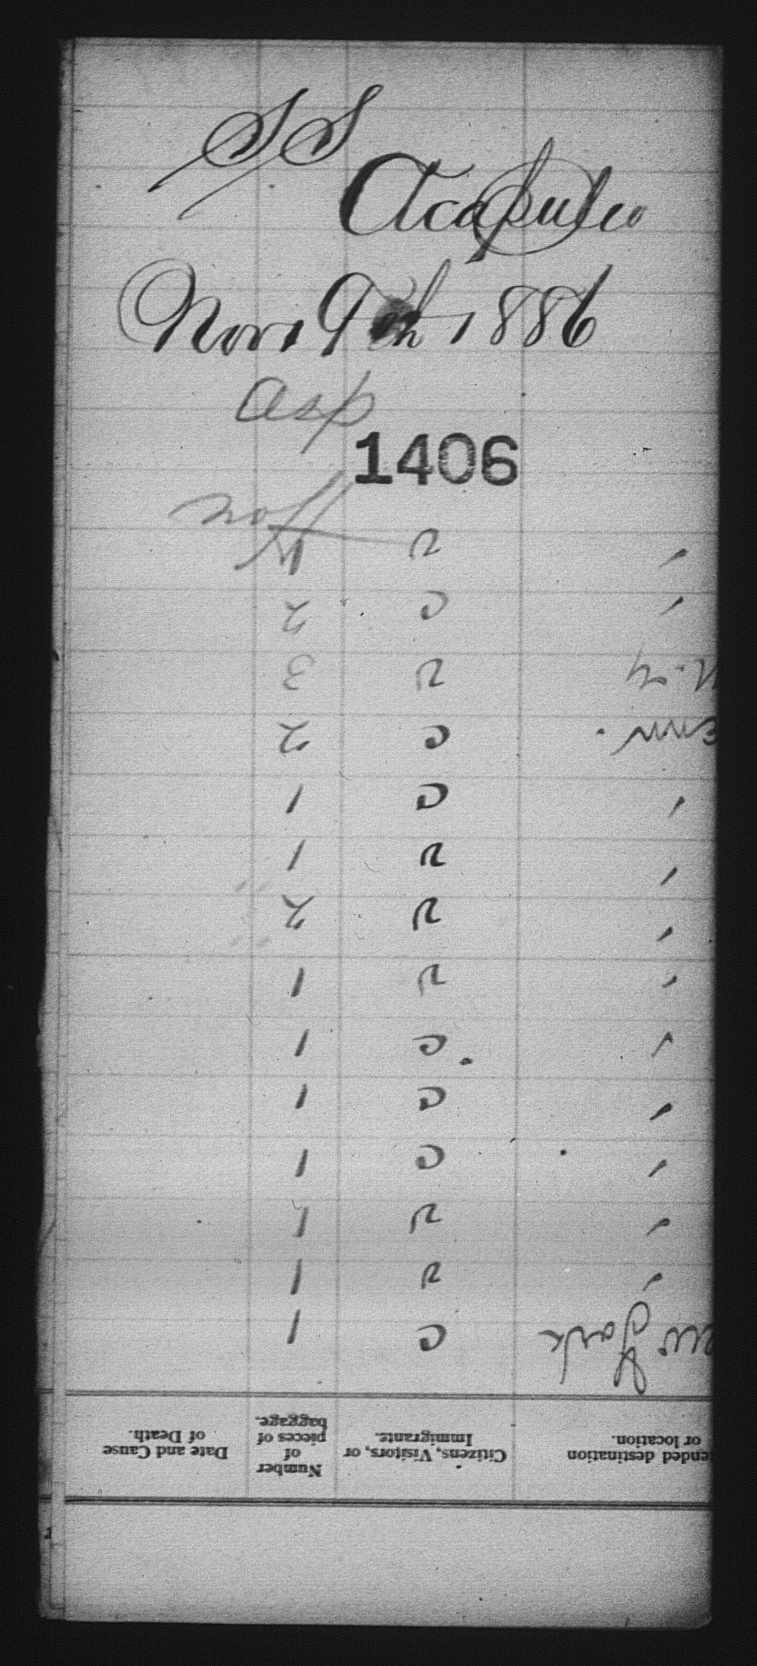 SS
Acapulco
Nov. 9th 1886
asp
1406
ended destination or location.
Citizens, Visitors, or Immigrants.
Number of pieces of baggage.
Date and Cause of Death.
ew York c 1
" v 1
" v 1
" c 1
" c 1
" c 1
" v 1
" v 2
" v 1
" c 1
c 2
N.Y v 3
" c 2
" v